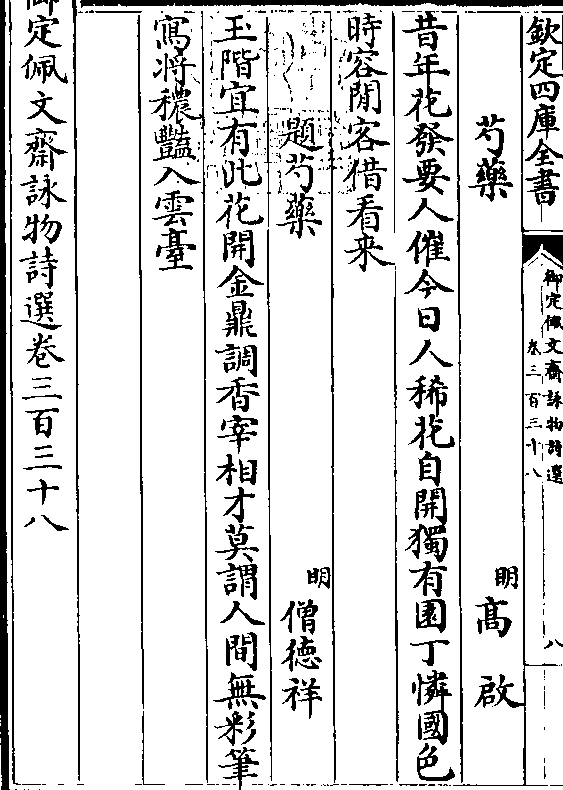 欽定四庫全書
御定佩文齋詠物詩選
卷三百三十八
八
芍藥
明
高啟
昔年花發要人催今日人稀花自開獨有園丁憐國色
時容閒客借看来
題芍藥
明
僧德祥
玉階宜有此花開金鼎調香宰相才莫謂人間無彩筆
寫將穠豔入雲臺
御定佩文齋詠物詩選卷三百三十八